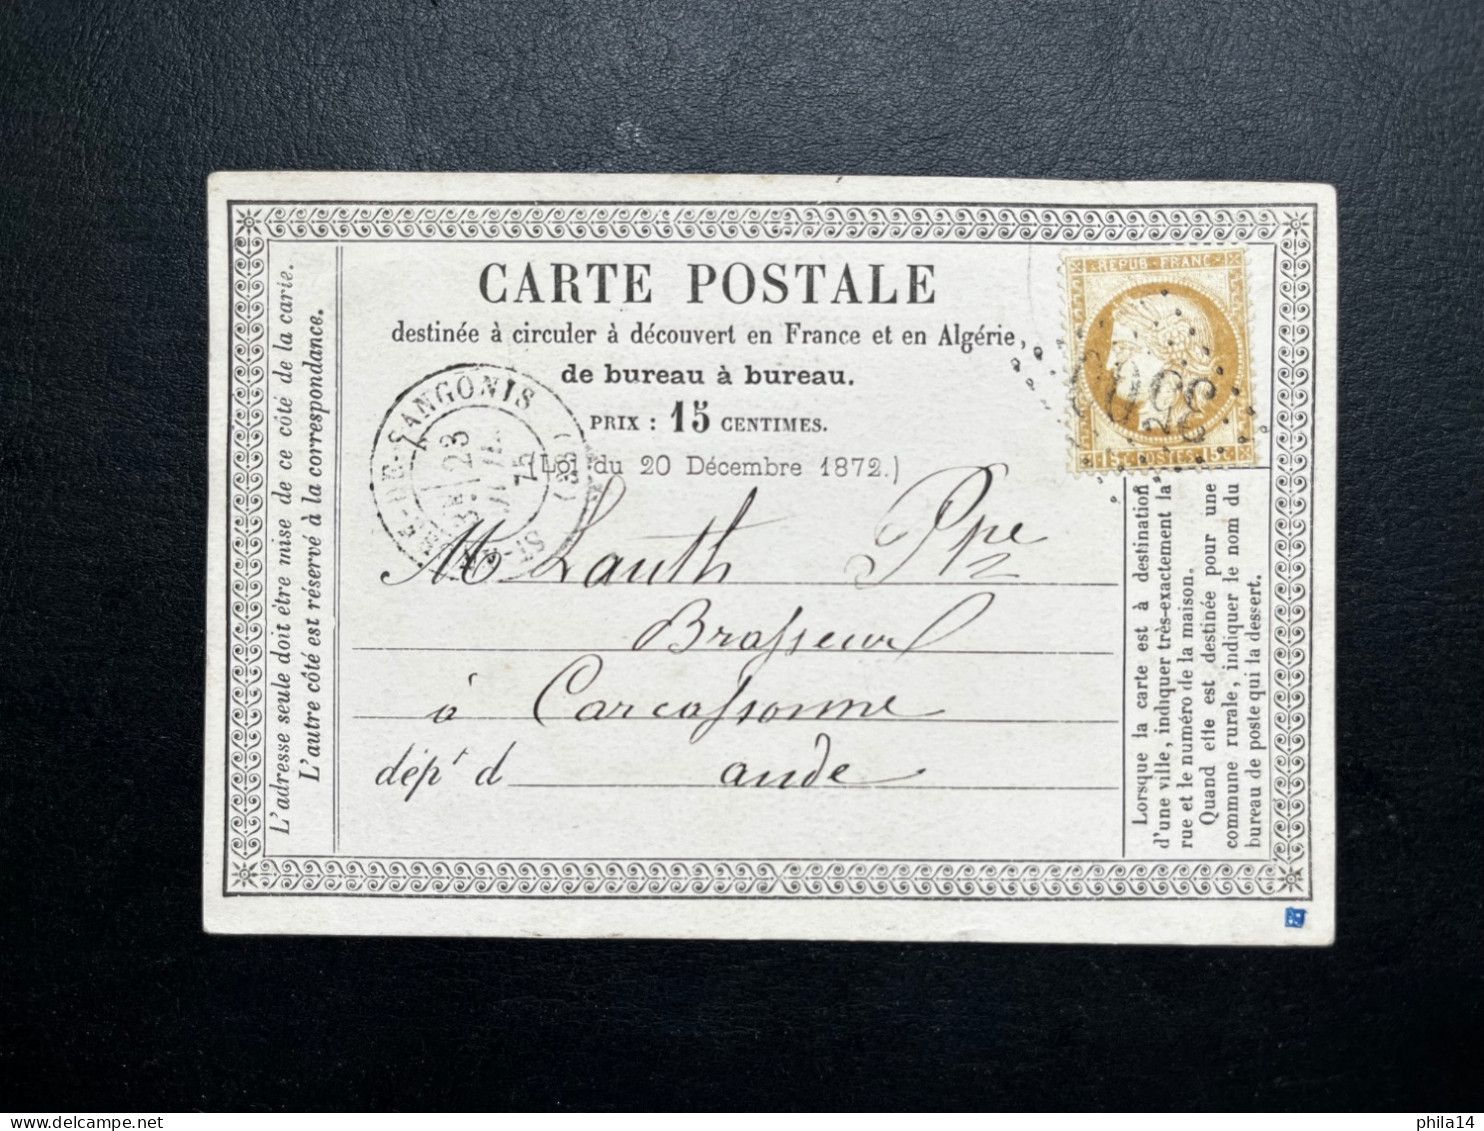 CARTE POSTALE
destinée à circuler à découvert en France et en Algérie,
de bureau à bureau.
PRIX : 15 CENTIMES.
(Loi du 20 Décembre 1872.)
REPUB·FRANC
15 POSTES 15
SANGONIS
23
75
M Lauth Ppe
Brasseur
à Carcassonne
dép' d aude
L'adresse seule doit être mise de ce côté de la carte.
L'autre côté est réservé à la correspondance.
Lorsque la carte est à destination
d'une ville, indiquer très-exactement la
rue et le numéro de la maison.
Quand elle est destinée pour une
commune rurale, indiquer le nom du
bureau de poste qui la dessert.
phila14